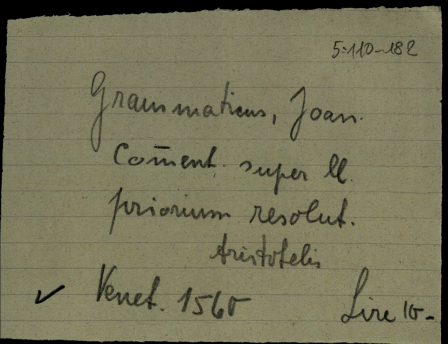 5-110-182
Grammaticus, Joan.
Coment. super ll.
priorium resolut.
Aristotelis
✓ Venet. 1560
Lire 10-